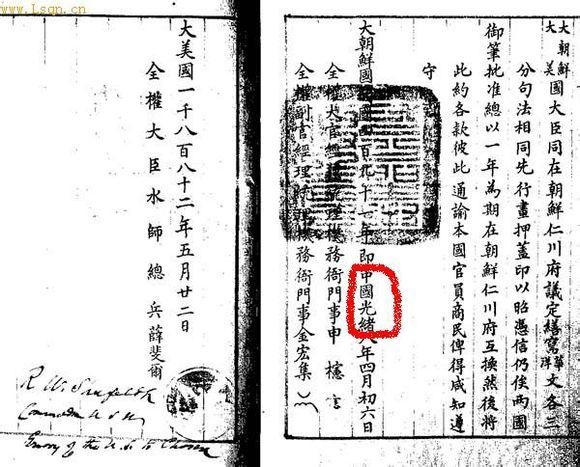 大朝鮮大美國大臣同在朝鮮仁川府議定繕寫華洋文各三
分句法相同先行畫押蓋印以昭憑信仍俟兩國
御筆批准總以一年為期在朝鮮仁川府互換然後將
此約各款彼此通諭本國官員商民俾得咸知遵
守
大朝鮮國 四百九十一年即中國光緒八年四月初六日
全權大官經理統理機務衙門事申櫶
全權副官經理統理機務衙門事金宏集
大美國一千八百八十二年五月廿二日
全權大臣水師總兵薛斐爾
R. W. Shufeldt
Commodore U.S.N.
Envoy of the U.S. to Chosen
www.Lsqn.cn